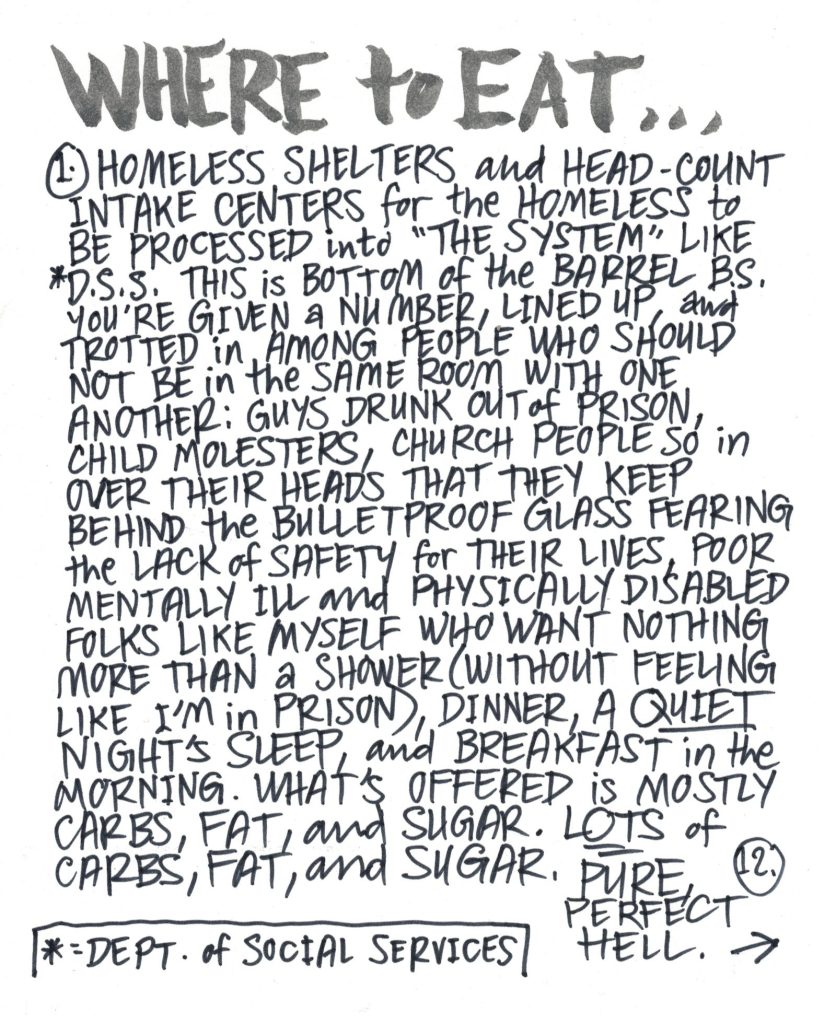 WHERE to EAT...
1. HOMELESS SHELTERS and HEAD-COUNT
INTAKE CENTERS for the HOMELESS to
BE PROCESSED into "THE SYSTEM" LIKE
*D.S.S. THIS is BOTTOM of the BARREL B.S.
YOU'RE GIVEN a NUMBER, LINED UP, and
TROTTED in AMONG PEOPLE WHO SHOULD
NOT BE in the SAME ROOM WITH ONE
ANOTHER: GUYS DRUNK OUT of PRISON,
CHILD MOLESTERS, CHURCH PEOPLE SO in
OVER THEIR HEADS THAT THEY KEEP
BEHIND the BULLETPROOF GLASS FEARING
the LACK of SAFETY for THEIR LIVES, POOR
MENTALLY ILL and PHYSICALLY DISABLED
FOLKS LIKE MYSELF WHO WANT NOTHING
MORE THAN a SHOWER (WITHOUT FEELING
LIKE I'M in PRISON), DINNER, A QUIET
NIGHT'S SLEEP, and BREAKFAST in the
MORNING. WHAT'S OFFERED is MOSTLY
CARBS, FAT, and SUGAR. LOTS of
CARBS, FAT, and SUGAR. PURE,
PERFECT
HELL. →
12.
*=DEPT. of SOCIAL SERVICES